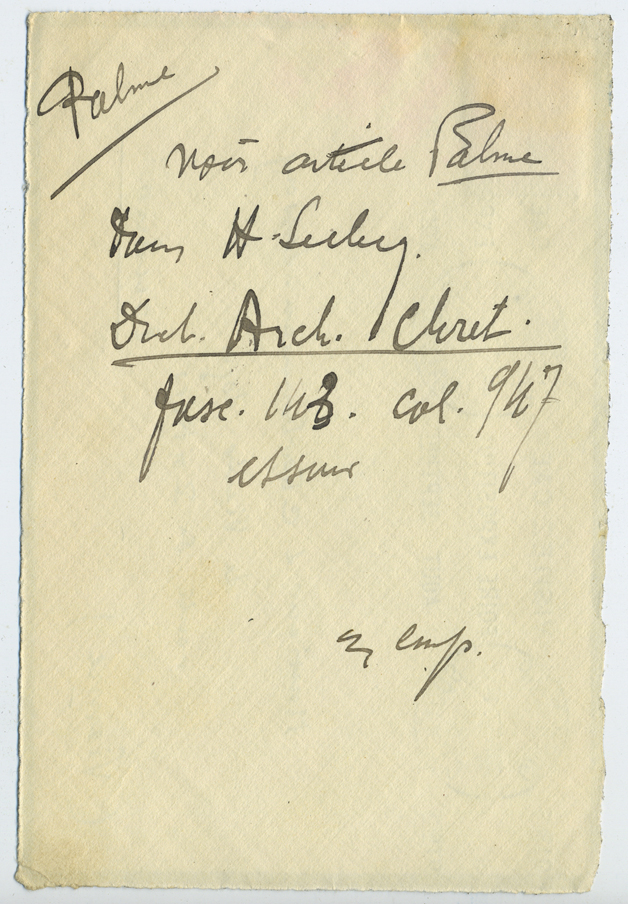 Palme
Voir article Palme
Dans H.
Dict. Arch. Chret.
fasc. 143. col. 947
et suiv